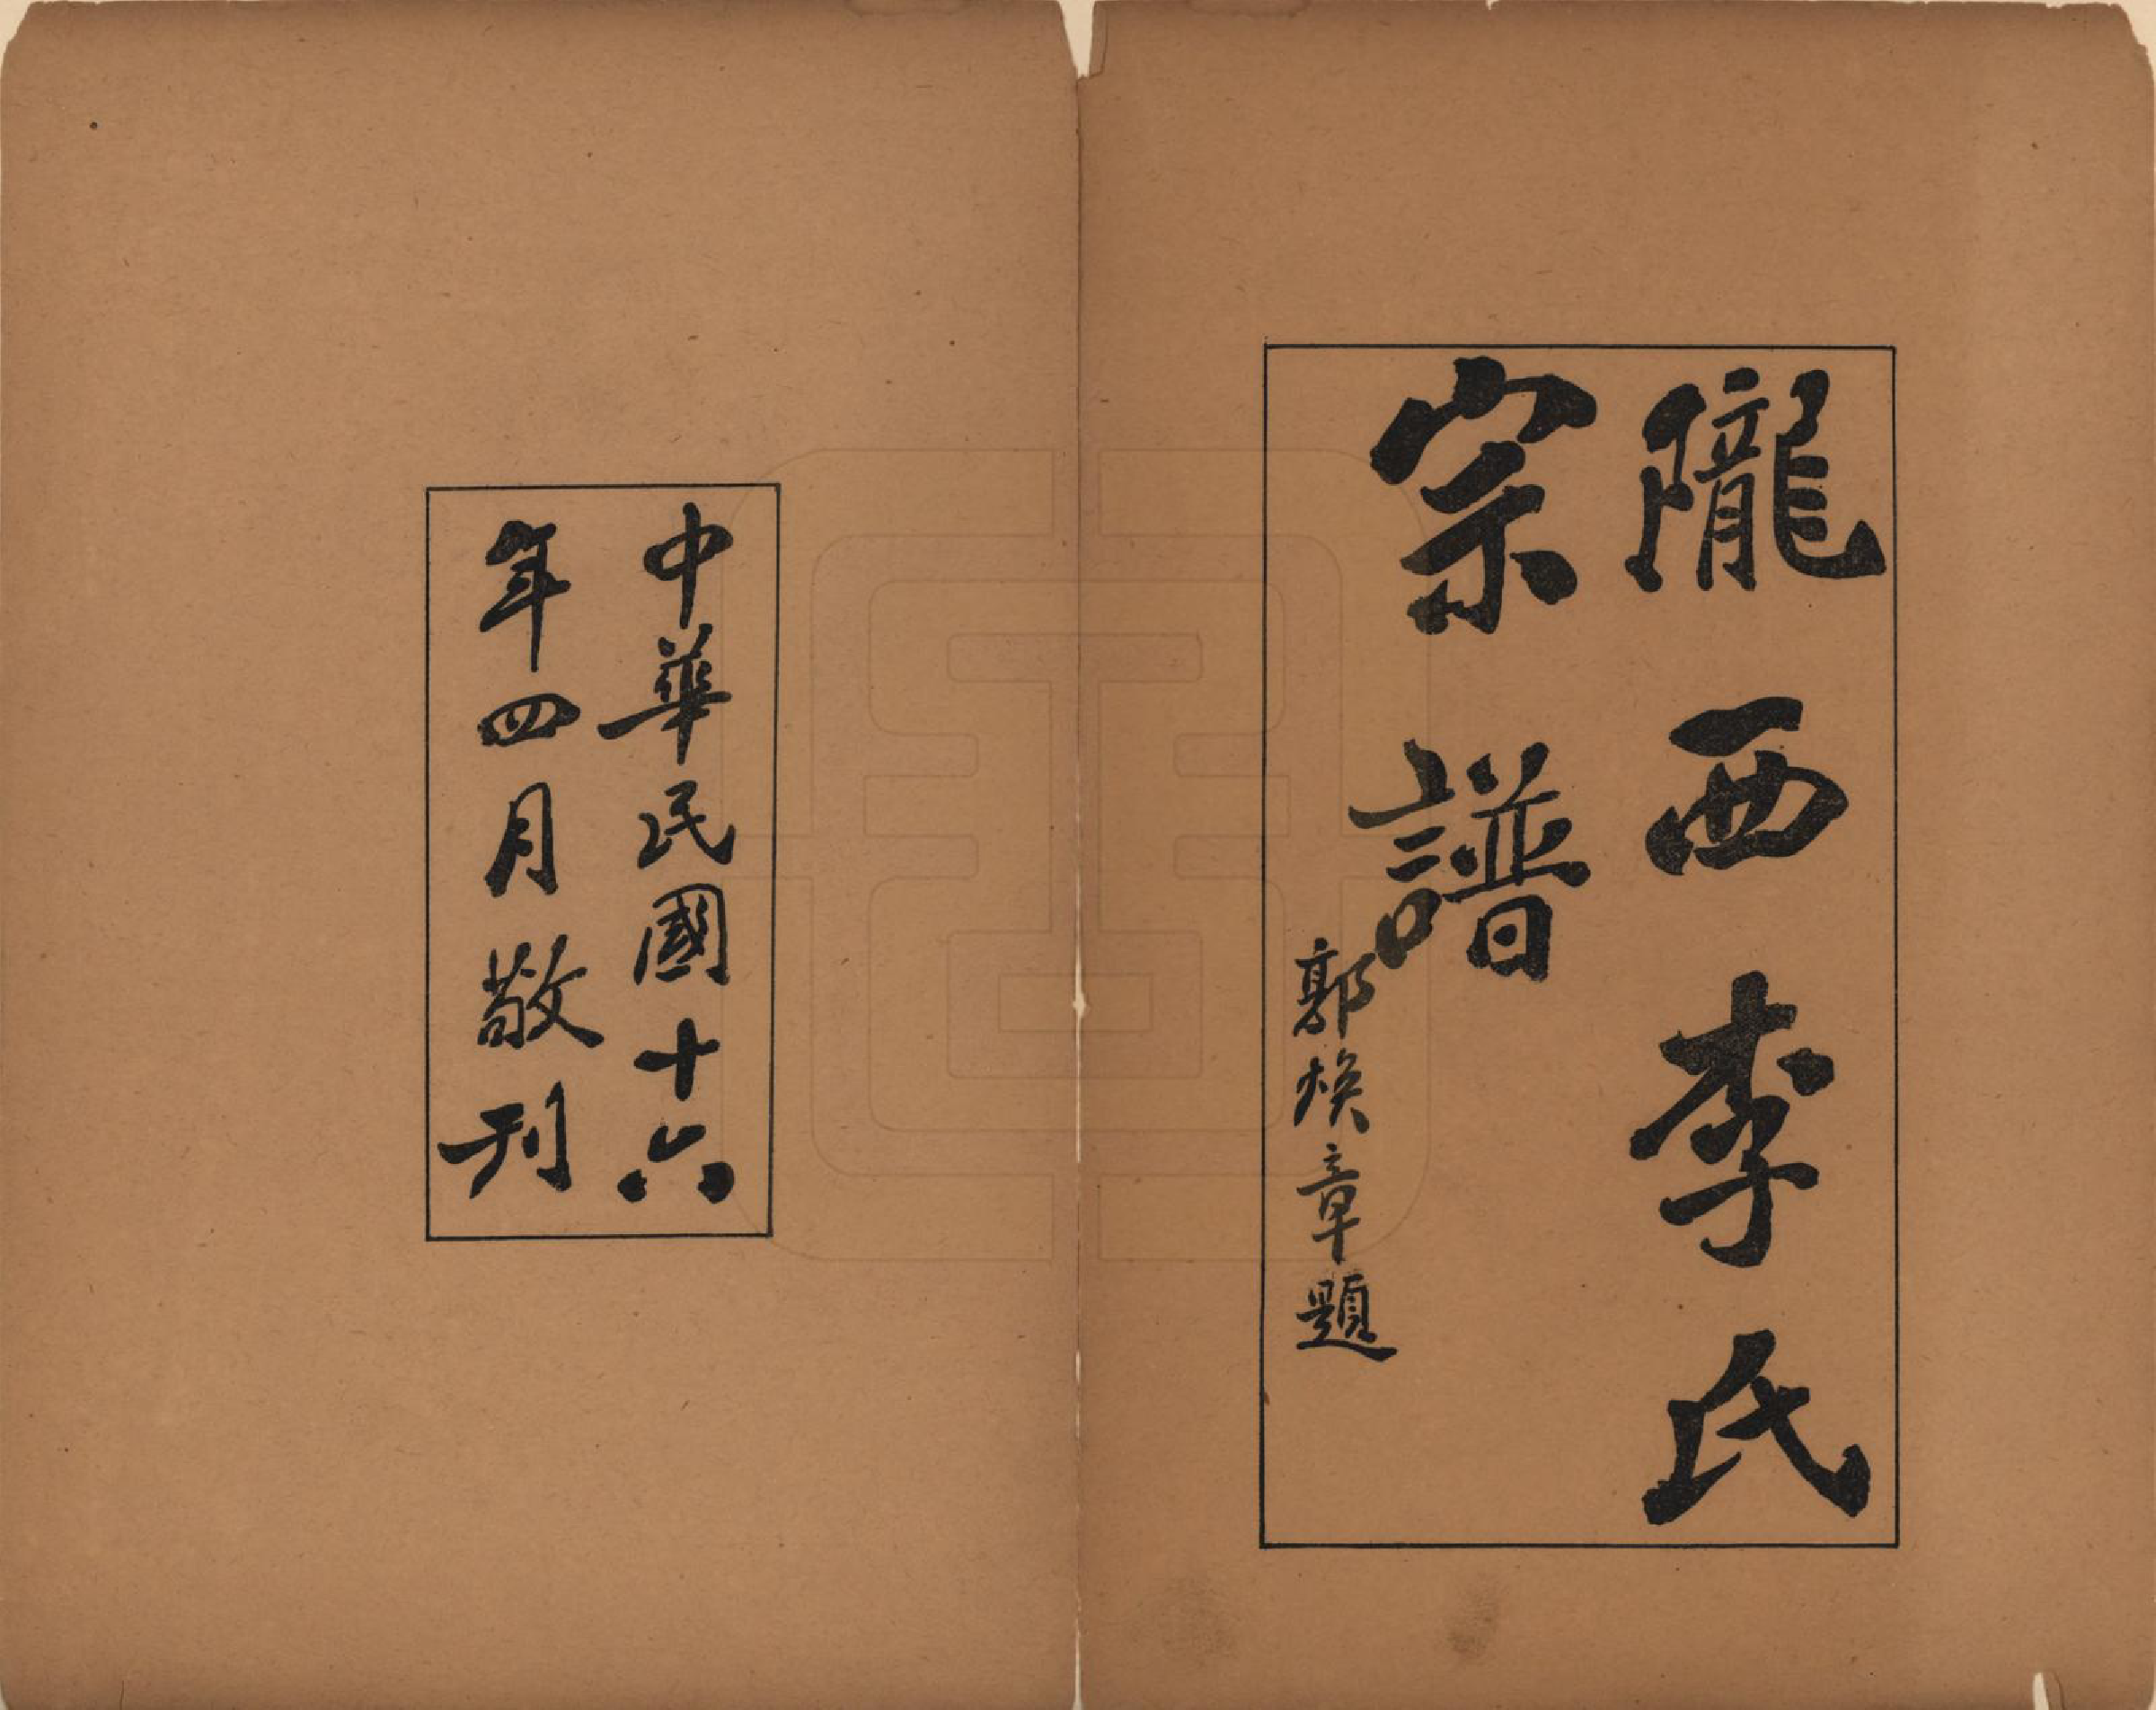 隴西李氏
宗譜
郭煥章題
中華民國十六
年四月敬刊